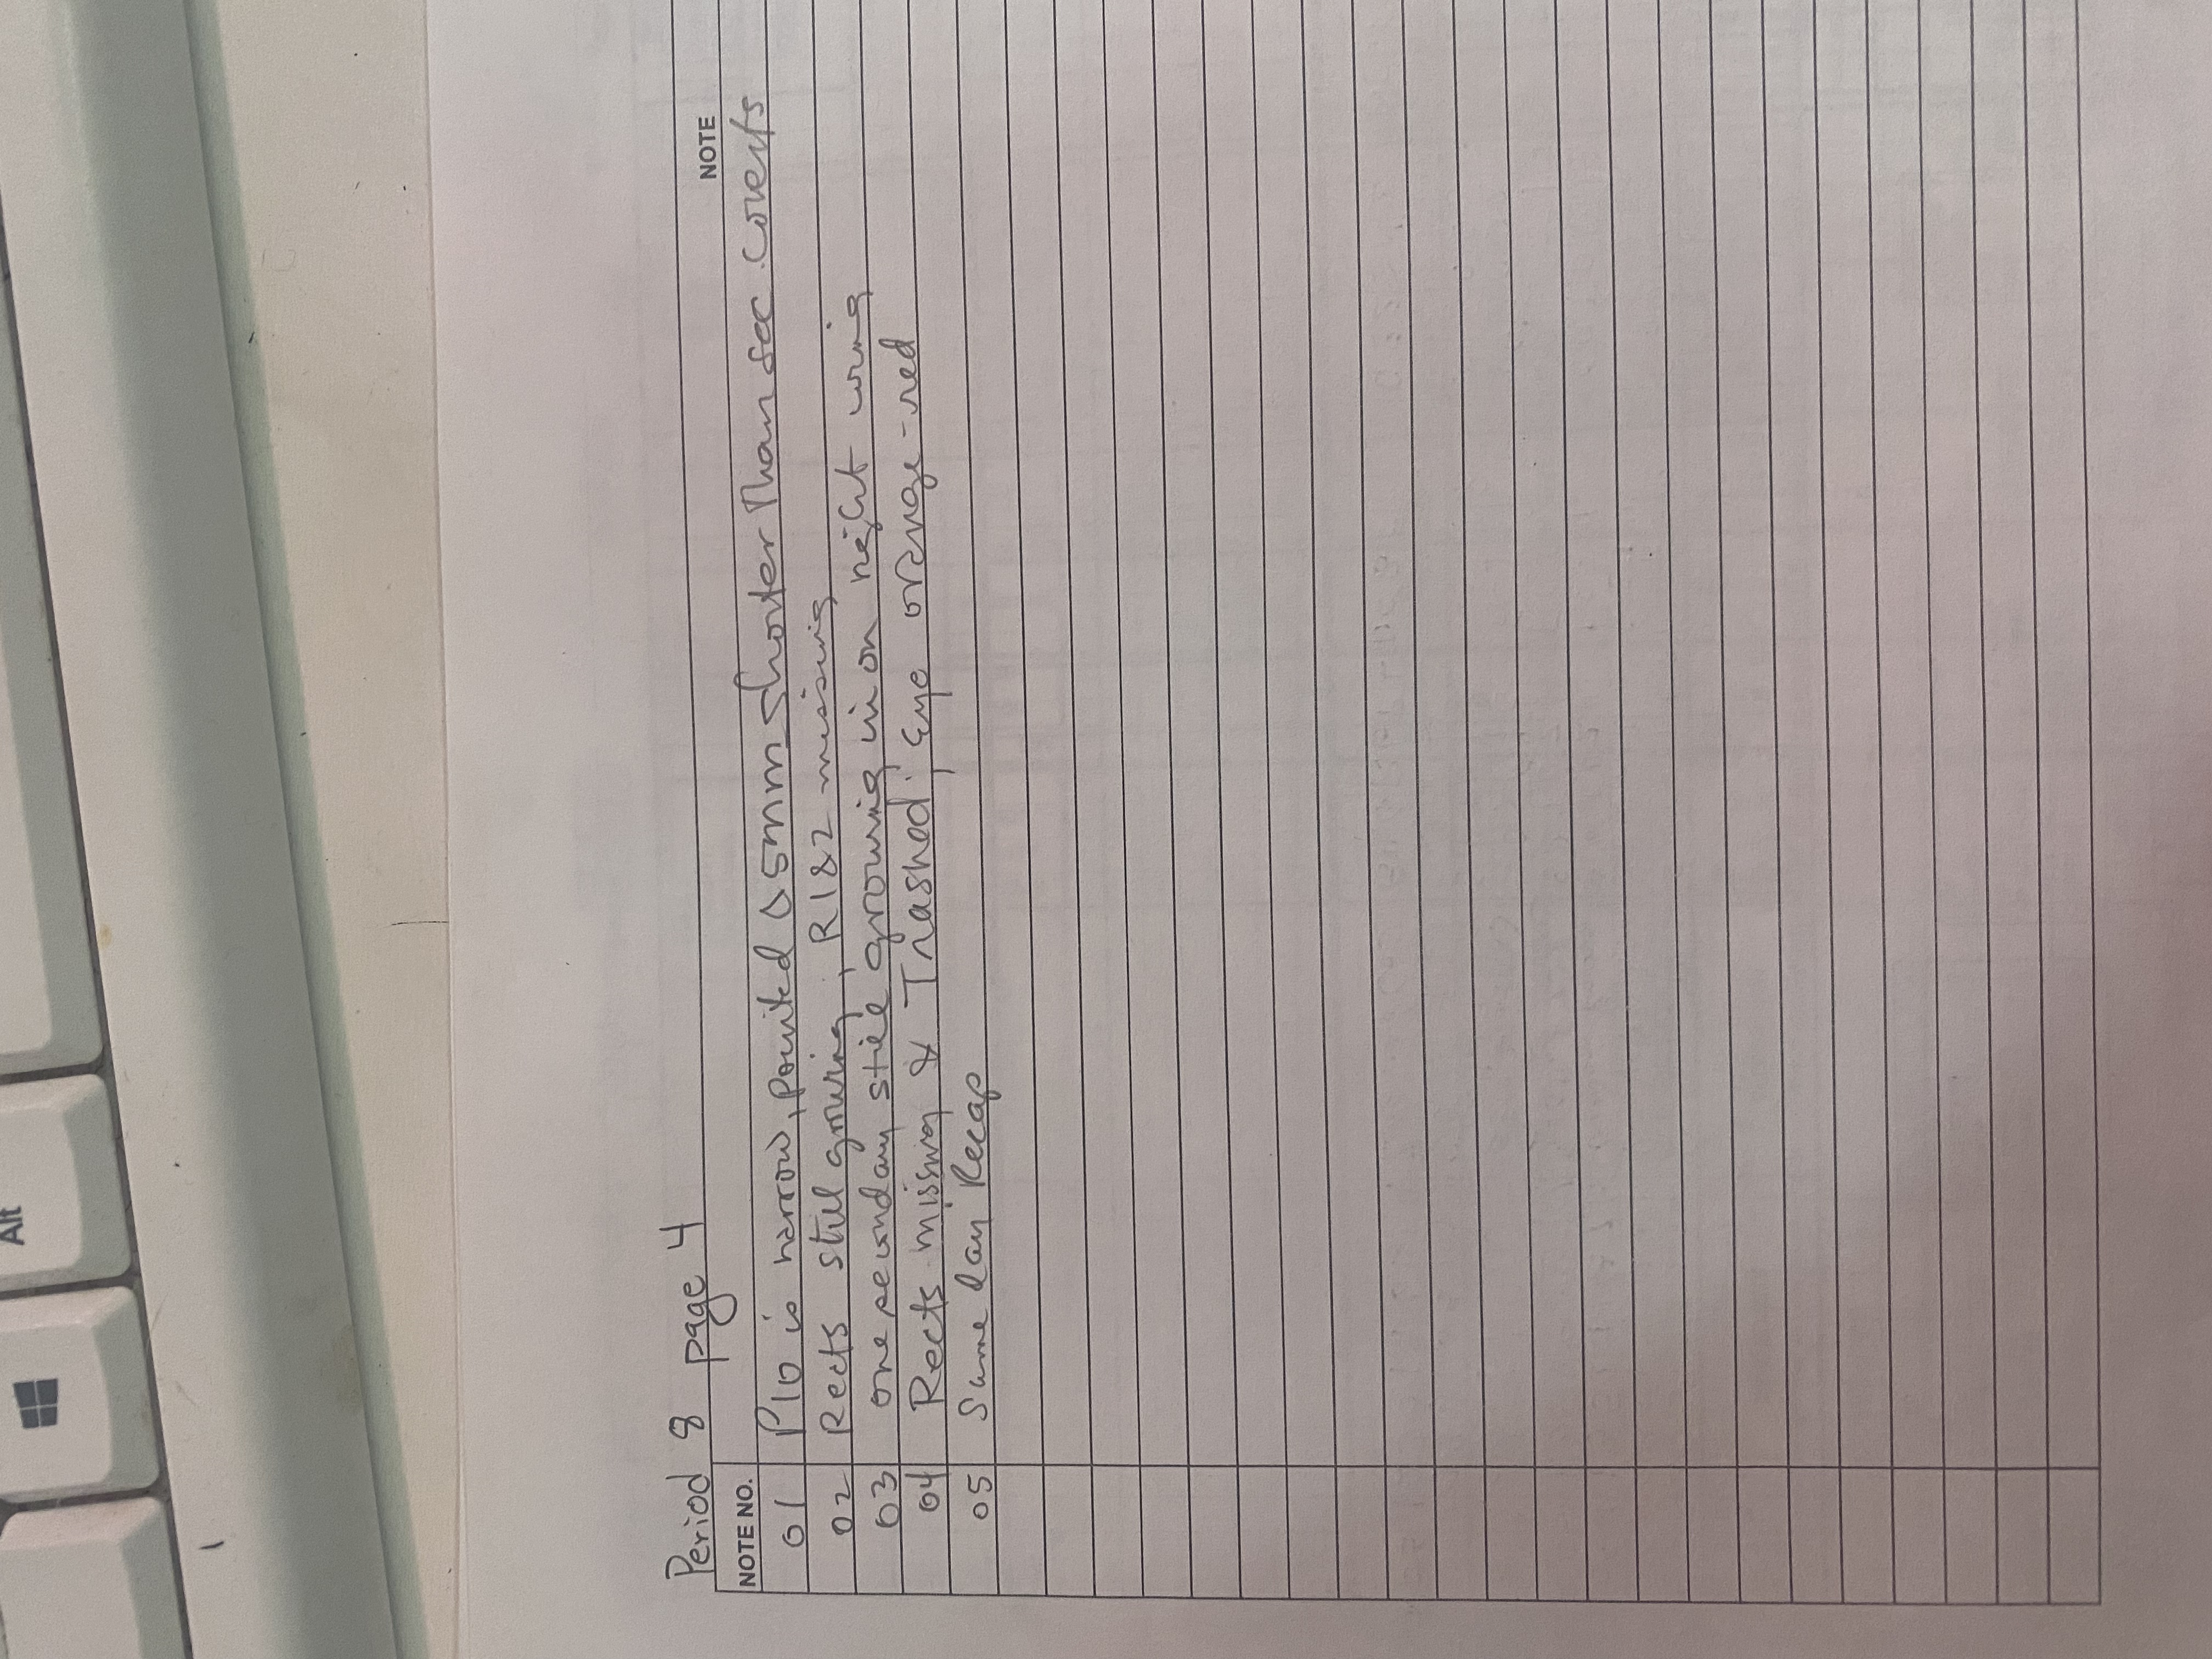 Alt
Period 8 page 4
NOTE NO. NOTE
01 P10 is narrow, pointed & 5mm shorter than sec. coverts
02 Rects still growing; R1&2 missing
03 one secondary still growing in on right wing
04 Rects missing & Trashed; Eye orange-red
05 Same day Recap